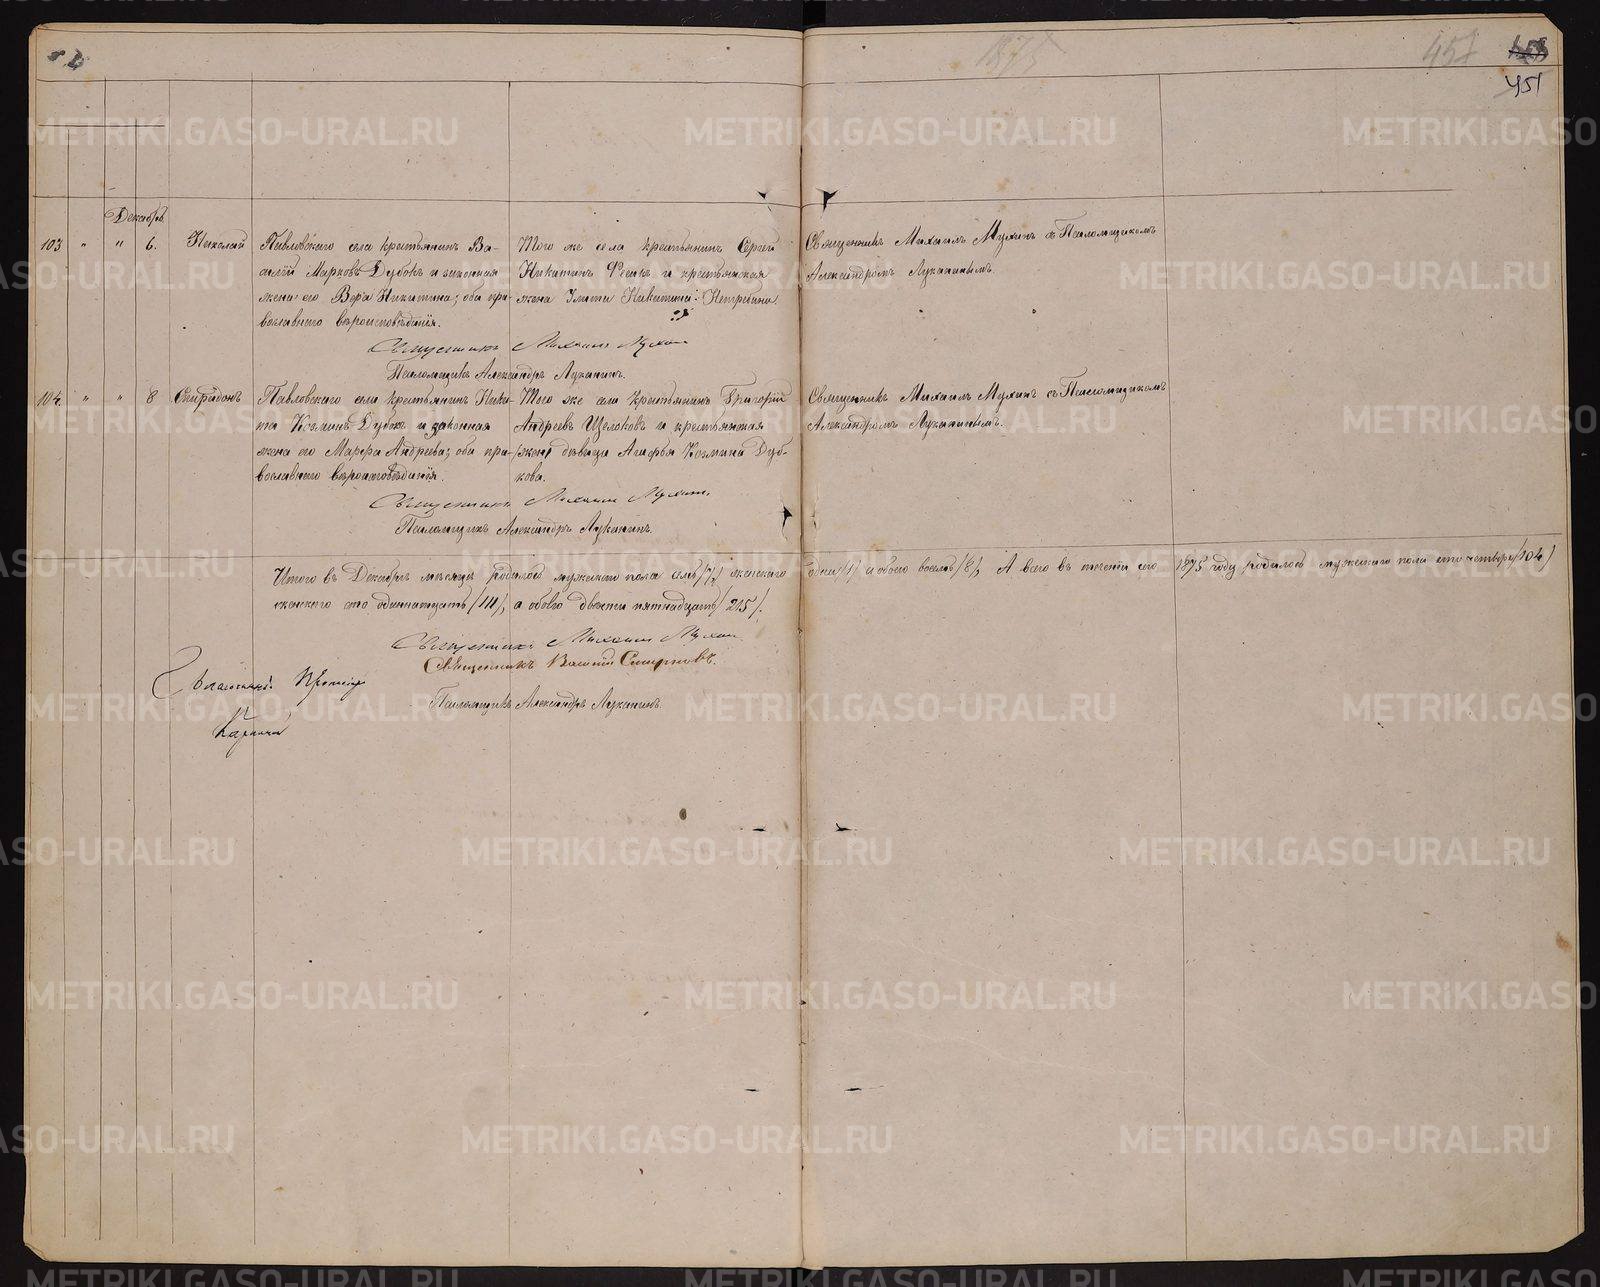 1875
451
451
Декабрь
103 " " 6. Николай
Павловскаго села крестьянинъ Ва-
силій Марковъ Дубокъ и законная
жена его Вера Никитина; оба пра-
вославнаго вѣроисповѣданія.
Того же села крестьянинъ Сергій
Никитинъ и крестьянская
жена Никитина
Священникъ Михаилъ Мухинъ съ Псаломщикомъ
Александромъ Луканинымъ.
Священникъ Михаилъ Мухинъ
Псаломщикъ Александръ Луканинъ.
104. " " 8 Спиридонъ
Павловскаго села крестьянинъ Ники-
та Козминъ Дубокъ и законная
жена его Марфа Андреева; оба пра-
вославнаго вѣроисповѣданія.
Того же села крестьянинъ Григорій
Андреевъ Щелоковъ и крестьянская
девица Агафья Козмина Дуб-
кова.
Священникъ Михаилъ Мухинъ съ Псаломщикомъ
Александромъ Луканинымъ.
Священникъ Михаилъ Мухинъ.
Псаломщикъ Александръ Луканинъ.
Итого въ Декабрѣ мѣсяцѣ родилось мужескаго пола семь /7/, женскаго одна /1/ а обоего восемь /8/, А всего въ теченіи сего 1875 году родилось мужескаго пола сто четыре /104/
женскаго сто одиннатцать /111/, а обоего двѣсти пятнадцать /215/.
Священникъ Михаилъ Мухинъ
Священникъ Василій Смирновъ.
Псаломщикъ Александръ Луканинъ.
METRIKI.GASO-URAL.RU